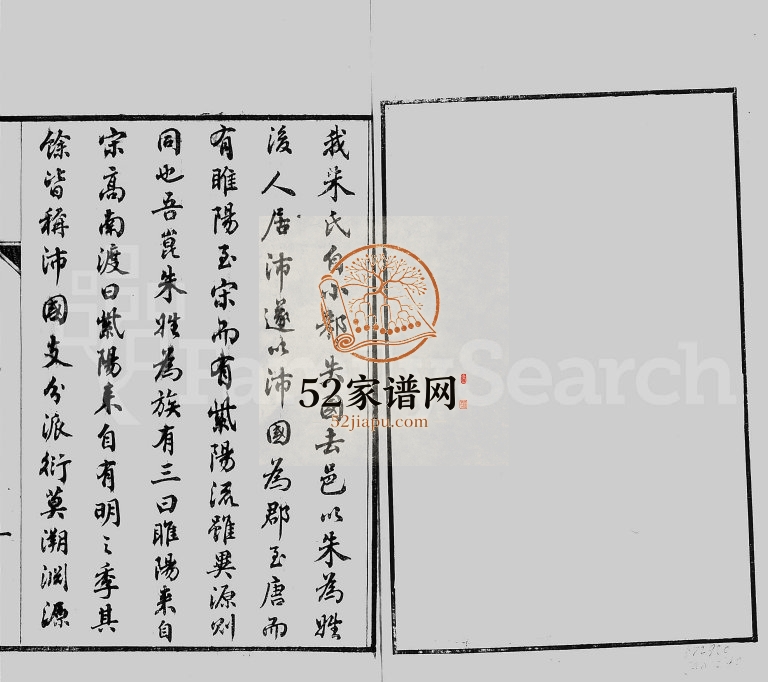 我朱氏自小邾失國去邑以朱為姓
後人居沛遂以沛國為郡至唐而
有睢陽至宋而有紫陽流雖異源則
同也吾崑朱姓為族有三曰睢陽来自
宋高南渡曰紫陽来自有明之季其
餘皆稱沛國支分派衍莫溯淵源
52家谱网
52jiapu.com
Search